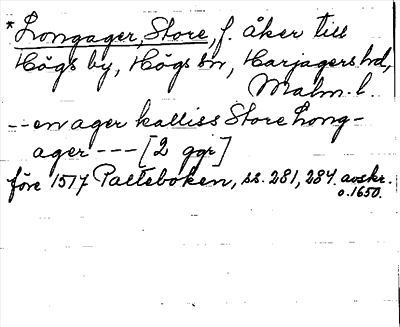 * Longager, Store, f. åker till
Högs by, Högs sn, Harjagers hd,
Malm. l.
-- en ager kalliss Store Long-
ager --- [2 ggr]
före 1517 Palteboken, ss. 281, 284. avskr.
o. 1650.